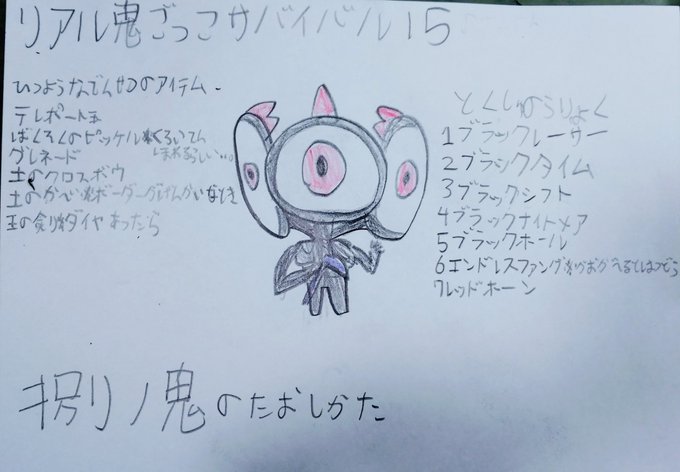 リアル鬼ごっこサバイバル15
ひつようなでんせつのアイテム
テレポート玉
ばくそくのピッケル※くろいてん
グレネード
しまれるらしい…
土のクロスボウ
土のかべ※ボーダーグ
王の ※ダイヤあったら
とくしゅのうりょく
1ブラックレーサー
2ブラックタイム
3ブラックシフト
4ブラックナイトメア
5ブラックホール
6エンドレスファング※
7レッドホーン
捌リノ鬼のたおしかた